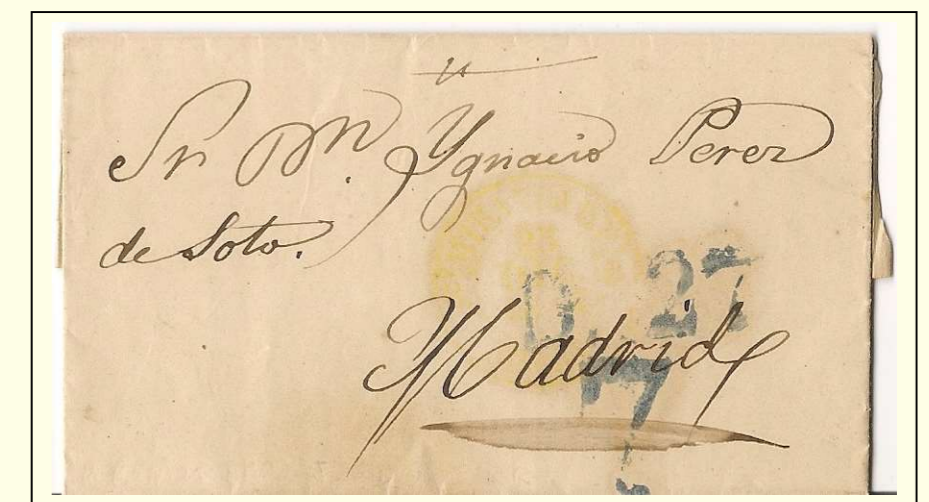 Sr Dn. Ygnacio Perez
de Soto.
Madrid
0 27